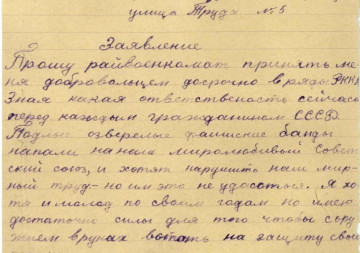 улица Труда №5
Заявление
Прошу райвоенкомат принять ме
ня добровольцем досрочно в ряды РККА
Зная какая ответственость сейчас
перед каждым гражданином СССР.
Подлые озверелые фашиские банды
напали на наш миролюбивый Совет
ский союз, и хотят нарушить наш мир-
ный труд – но им это не удасться. Я хо
тя и молод по своим годам но имею
достаточно силы для того чтобы с ору
жием в руках встать на защиту свое